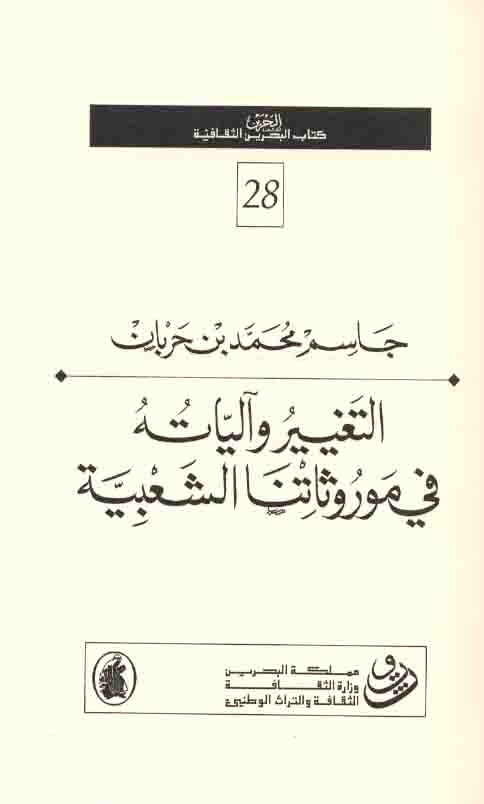 البحرين
كتاب البحرين الثقافية
28
جَاسِمْ مُحَمَّد بْن حَرْبَانْ
التَغيِيرُ وَآليّاتُهُ
في مَورُوثَاتِنَا الشَعْبِيَّة
مملكة البحرين
وزارة الثقافة
الثقافة والتراث الوطني